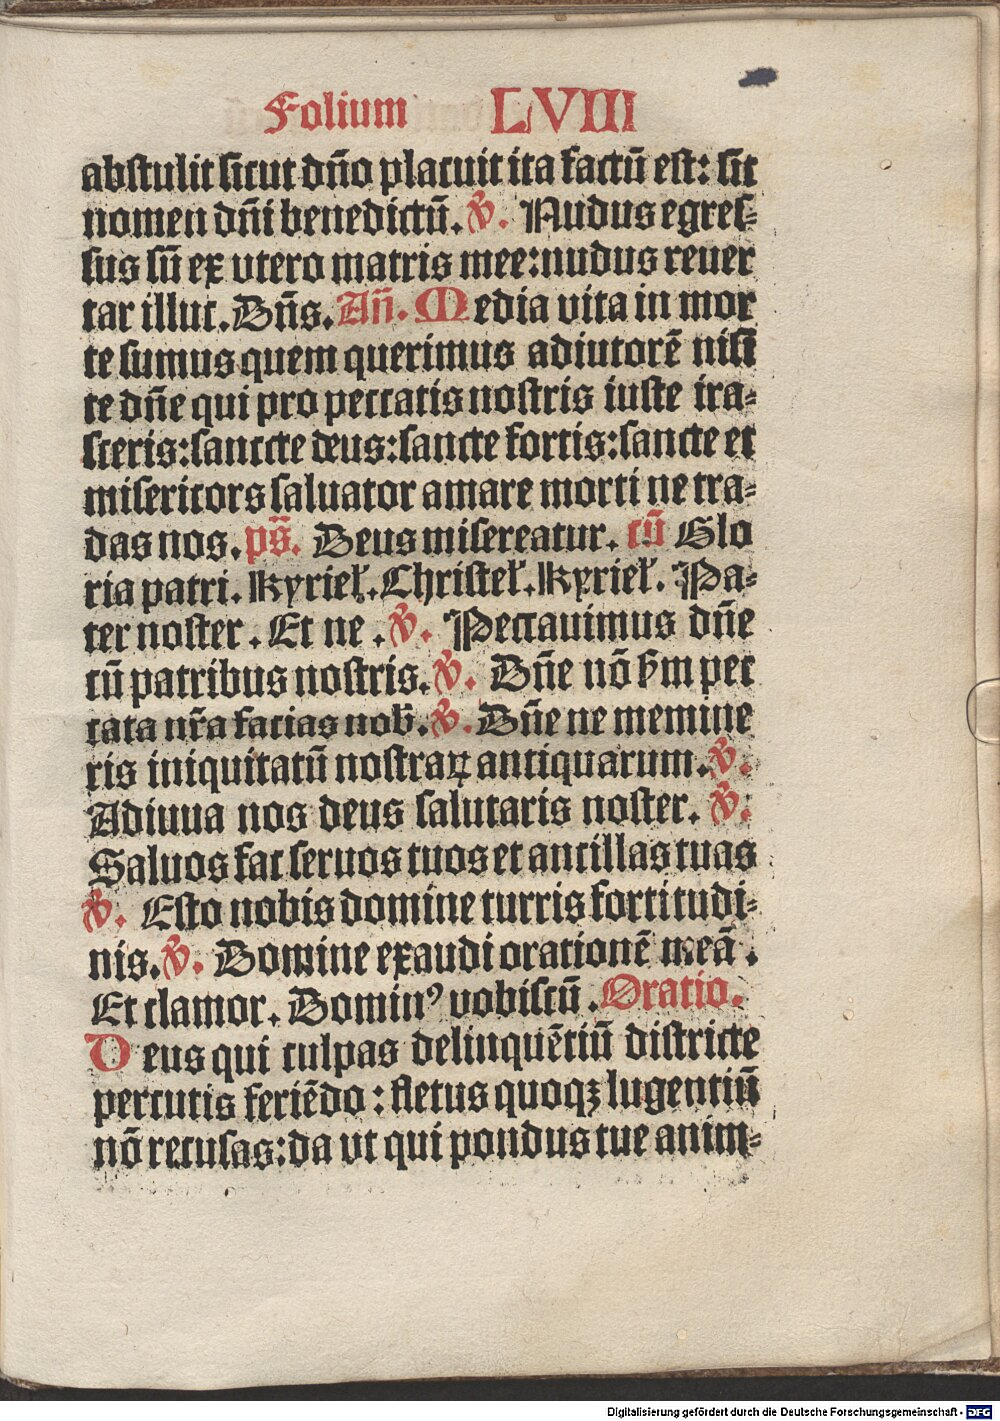 Folium LVIII
abstulit sicut dño placuit ita factū est: sit
nomen dñi benedictū. ℣. Nudus egres⸗
sus sū ex vtero matris mee: nudus reuer
tar illuc. Dñs. Añ. Media vita in mor
te sumus quem querimus adiutorē nisi
te dñe qui pro peccatis nostris iuste ira⸗
sceris: sanccte deus: sancte fortis: sancte et
misericors saluator amare morti ne tra⸗
das nos. ps̄. Deus misereatur. cū Glo
ria patri. Kyrieł. Christeł. Kyrieł. Pa⸗
ter noster. Et ne. ℣. Peccauimus dñe
cū patribus nostris. ℣. Dñe nō ẜm pec
cata nr̄a facias nob̄. ℣. Dñe ne memine
ris iniquitatū nostraꝝ antiquarum. ℣.
Adiuua nos deus salutaris noster. ℣.
Saluos fac seruos tuos et ancillas tuas
℣. Esto nobis domine turris fortitudi⸗
nis. ℣. Domine exaudi orationē meā.
Et clamor. Dominꝰ vobiscū. Oratio.
Deus qui culpas delinquētiū districte
percutis feriēdo: fletus quoqꝫ lugentiū
nō recusas: da vt qui pondus tue anim⸗
Digitalisierung gefördert durch die Deutsche Forschungsgemeinschaft - DFG